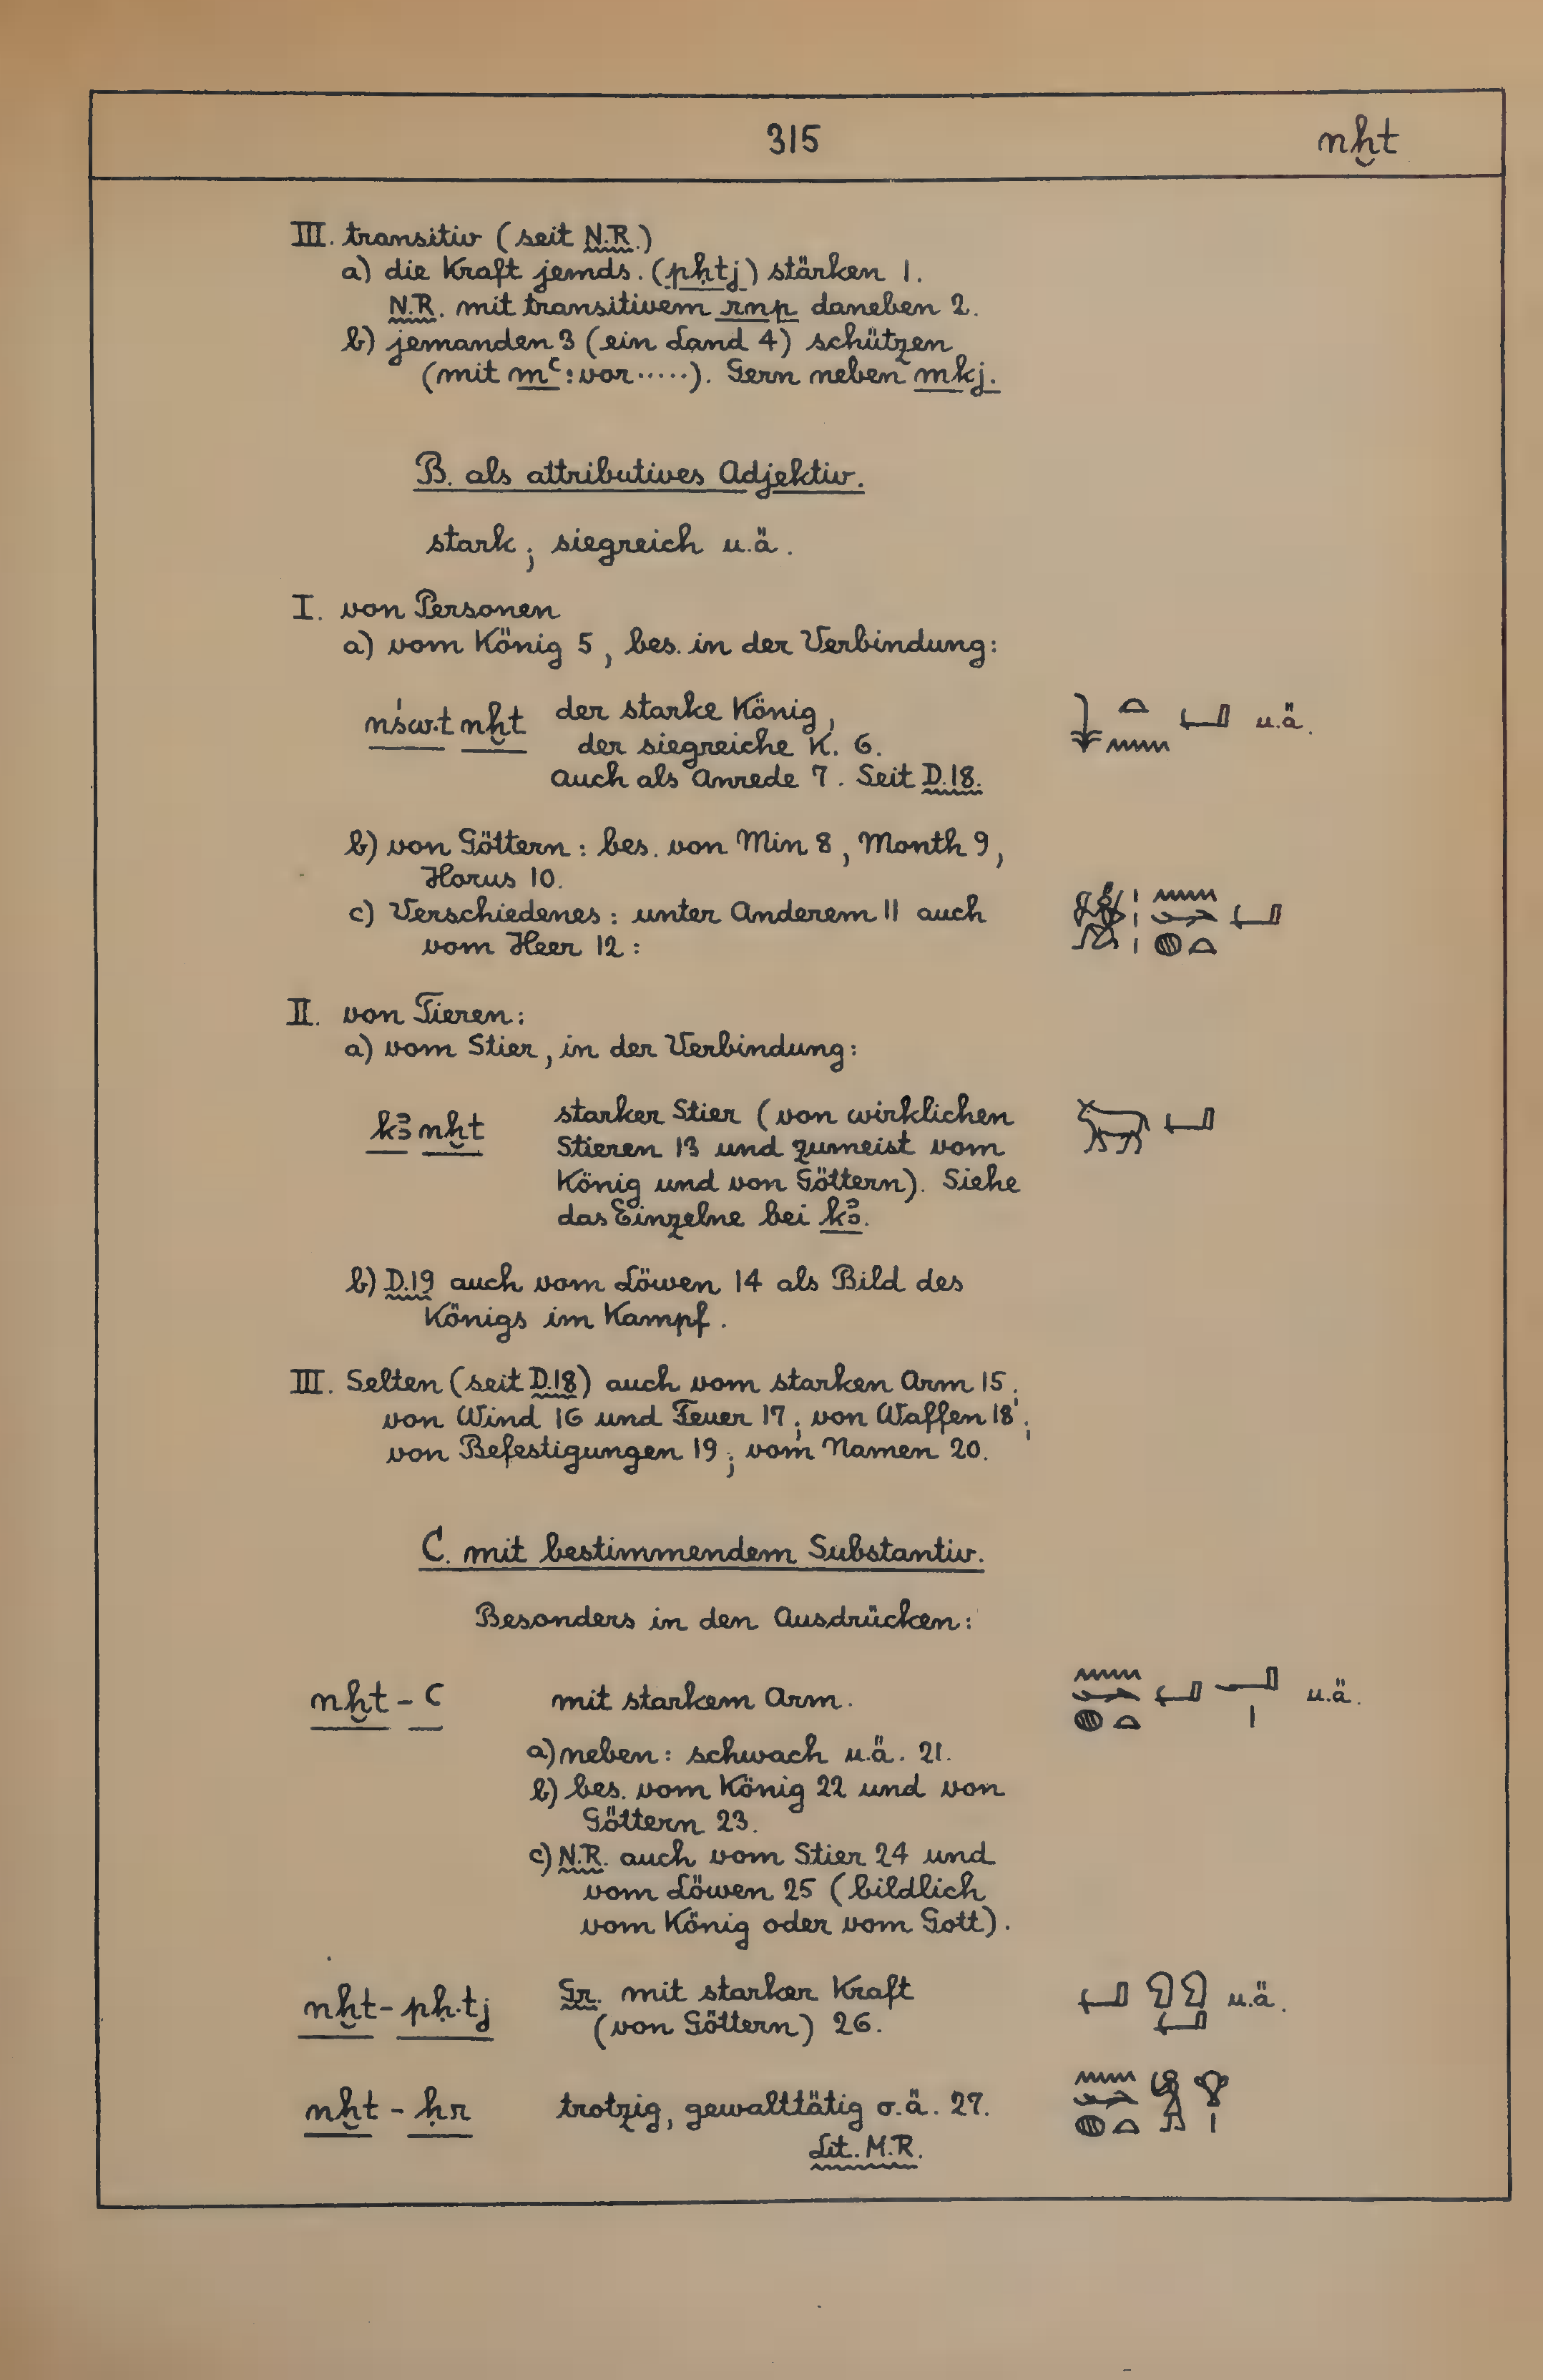 315 nḫt
III. transitiv (seit N.R.)
a) die Kraft jemds. (pḥtj) stärken 1.
N.R. mit transitivem rnp daneben 2.
b) jemanden 3 (ein Land 4) schützen
(mit mꜥ: vor .....). Gern neben mkj.
B. als attributives Adjektiv.
stark; siegreich u.ä.
I. von Personen
a) vom König 5, bes. in der Verbindung:
nśw.t nḫt der starke König, 𓇓𓏏𓈖 𓂡 u.ä.
der siegreiche K. 6.
auch als Anrede 7. Seit D.18.
b) von Göttern: bes. von Min 8, Month 9,
Horus 10.
c) Verschiedenes: unter Anderem 11 auch
vom Heer 12: 𓀎𓏥 𓈖𓆱𓐍𓏏 𓂡
II. von Tieren:
a) vom Stier, in der Verbindung:
kꜣ nḫt starker Stier (von wirklichen 𓃒 𓂡
Stieren 13 und zumeist vom
König und von Göttern). Siehe
das Einzelne bei kꜣ.
b) D.19 auch vom Löwen 14 als Bild des
Königs im Kampf.
III. Selten (seit D.18) auch vom starken Arm 15;
von Wind 16 und Feuer 17; von Waffen 18;
von Befestigungen 19; vom Namen 20.
C. mit bestimmendem Substantiv.
Besonders in den Ausdrücken:
nḫt-ꜥ mit starkem Arm. 𓈖𓆱𓐍𓏏 𓂡 𓂝𓏤 u.ä.
a) neben: schwach u.ä. 21.
b) bes. vom König 22 und von
Göttern 23.
c) N.R. auch vom Stier 24 und
vom Löwen 25 (bildlich
vom König oder vom Gott).
nḫt-pḥ.tj Gr. mit starker Kraft 𓂡 𓄇𓄇𓂡 u.ä.
(von Göttern) 26.
nḫt-ḥr trotzig, gewalttätig o.ä. 27. 𓈖𓆱𓐍𓏏 𓀜 𓁷𓏤
Lit. M.R.